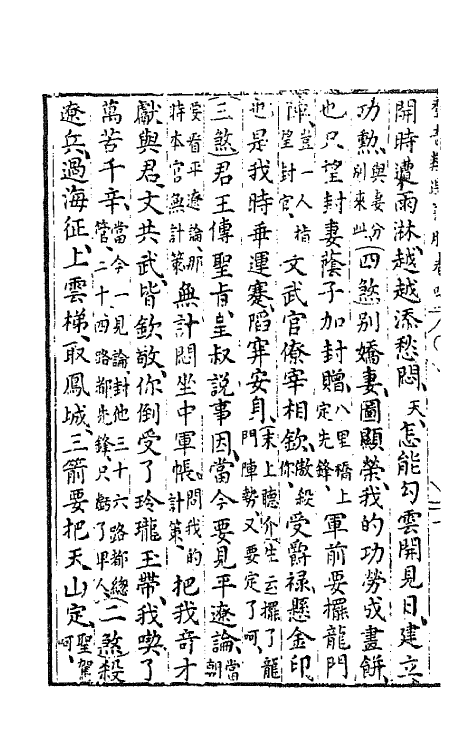 開時遭雨淋、越越添愁悶、天、怎能勾雲開見日、建立
功勳、與妻分別來此、四煞別嬌妻、圖顯榮、我的功勞成畫餅、
也只望封妻蔭子加封贈、八里橋上定先鋒、軍前要擺龍門
陣、豈一人指望封官、文武官僚宰相欽、傲殺你、受爵祿、懸金印、
也是我時乖運蹇、陷穽安身、末上聽介生云擺了龍門陣勢又要定了呵、
三煞君王傳聖旨、皇叔説事因、當今要見平遼論、當朝
受看平遼論那時本官無計策、無計悶坐中軍帳、問我的計策、把我奇才
獻與君、文共武、皆欽敬、你倒受了玲瓏玉帶、我喫了
萬苦千辛、當今一見論封他三十六路都總管、二十四路都先鋒、只虧了甲人、二煞殺
遼兵、過海征、上雲梯、取鳳城、三箭要把天山定、聖駕呵、